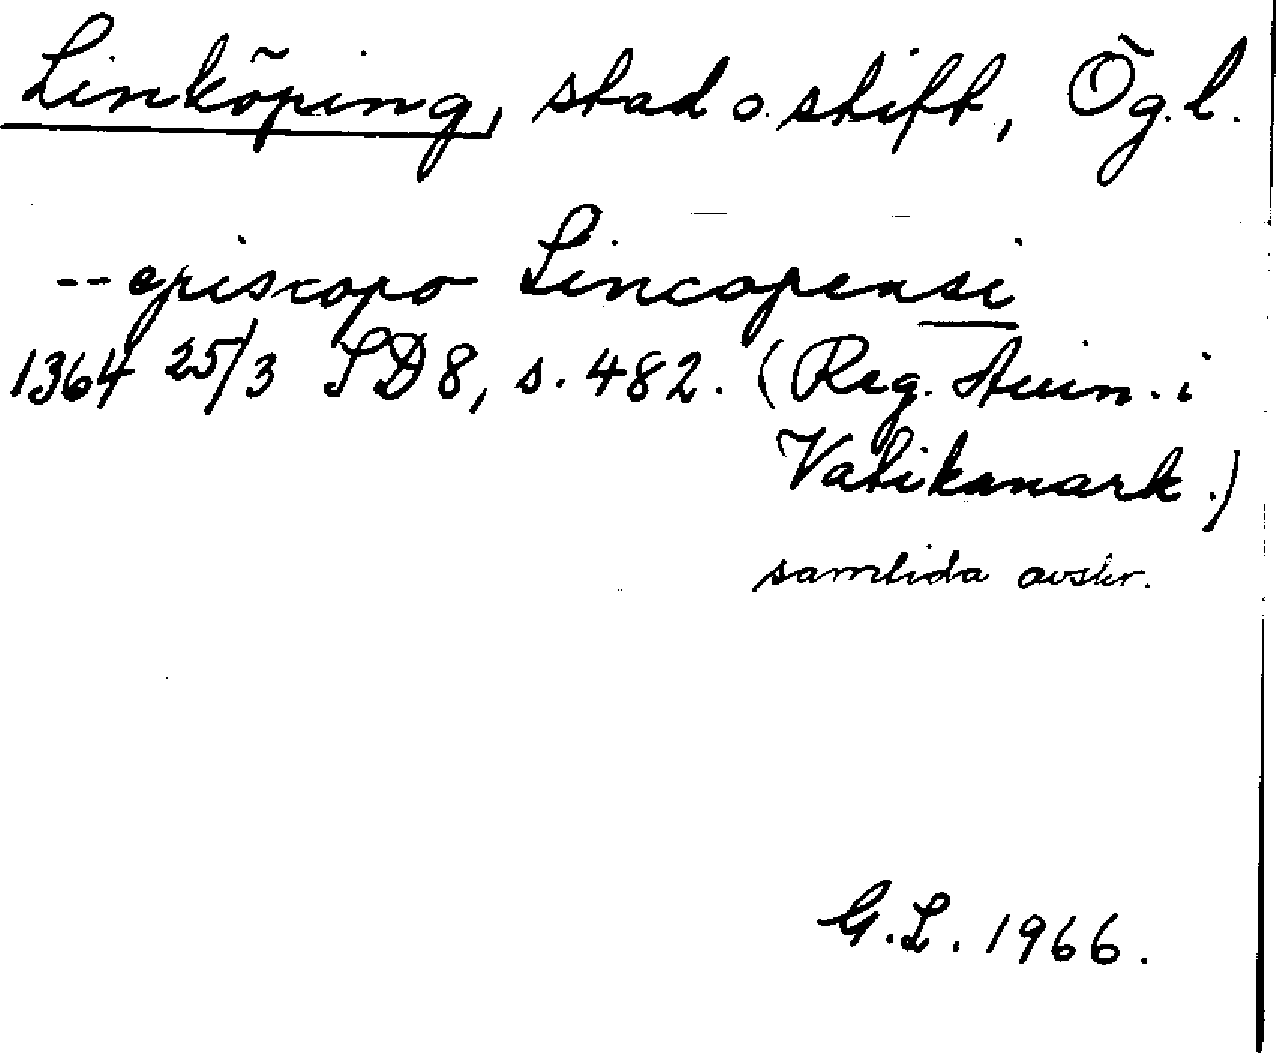 Linköping, stad o. stift, Ög.l.
-- episcopo Lincopensi
1364 25/3 SD 8, s. 482. (Reg. Avin. i
Vatikanark.)
samtida avskr.
G.L. 1966.